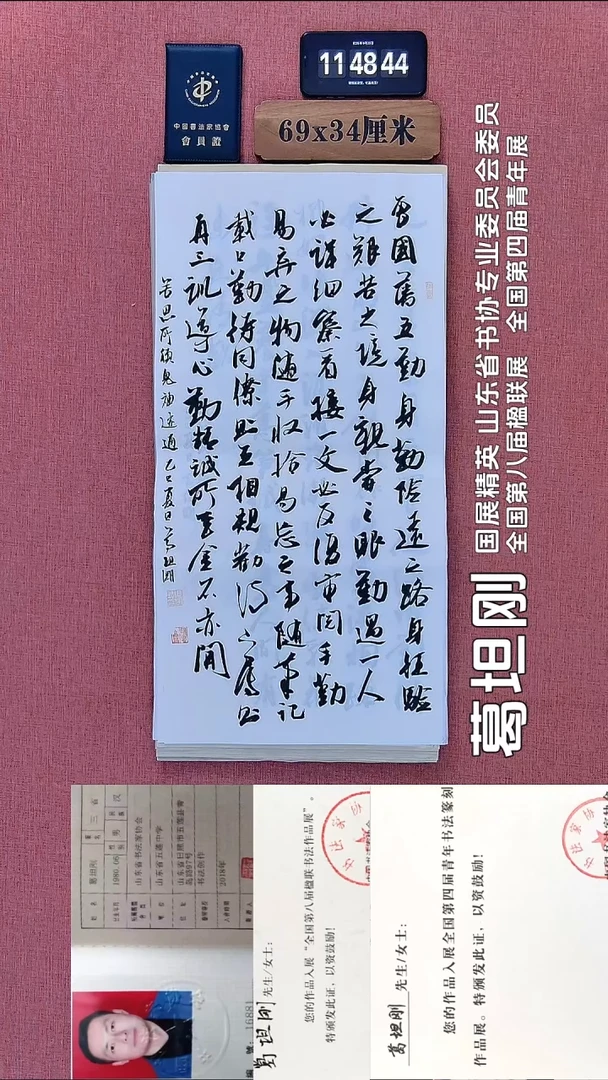 中国书法家协会
會員證
11 48 44
69x34厘米
曾國藩五勤身勤险遠之路身往驗
之艱苦之境身親嘗之眼勤遇一人
必詳细察看接一文必反復审閱手勤
易弃之物随手收拾易忘之事随筆记
載口勤待同僚则互相規勸待下属则
再三训導心勤精诚所至金石亦開
苦思所積鬼神迹通乙巳夏日葛坦刚
葛坦刚
国展精英 山东省书协专业委员会委员
全国第八届楹联展 全国第四届青年展
姓名 葛坦刚
山东省书法家协会
山东省五莲中学
书法创作
2018年
16881
葛坦刚 先生/女士:
您的作品入展“全国第八届楹联书法作品展”。
特颁发此证,以资鼓励!
葛坦刚 先生/女士:
您的作品入展全国第四届青年书法篆刻
作品展。特颁发此证,以资鼓励!